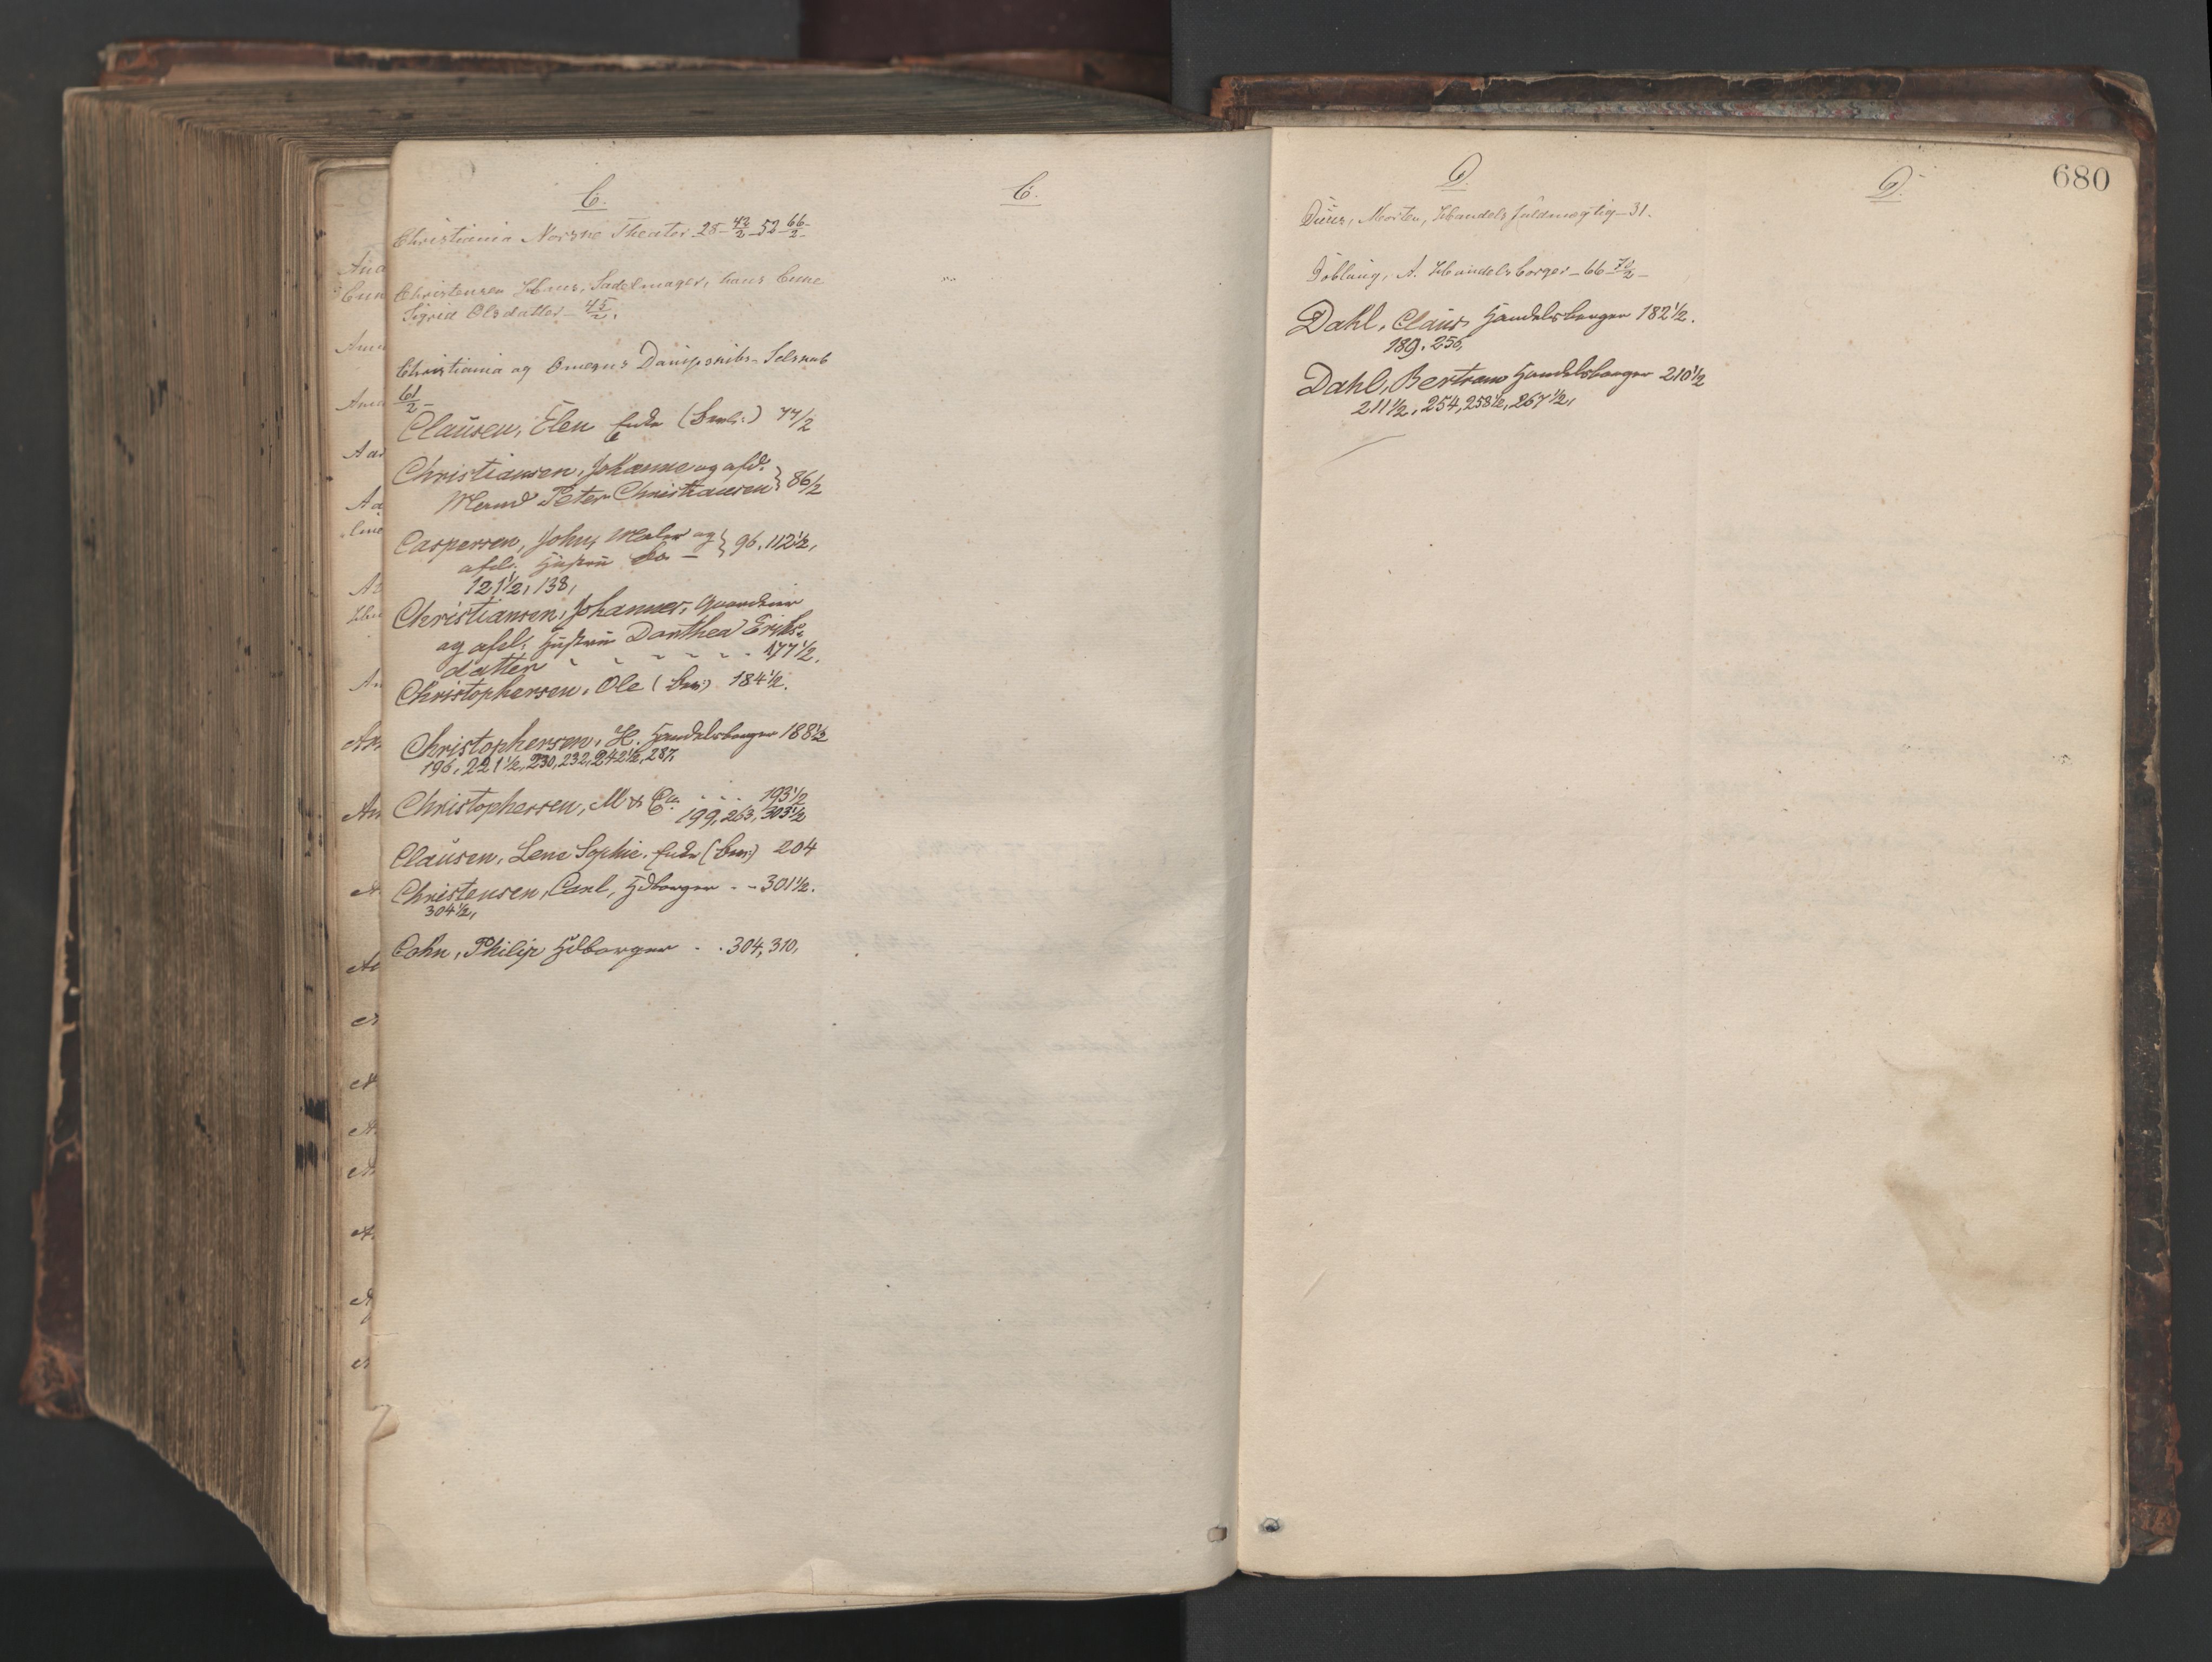 C.
Christiania Norske Theater 28 - 43/2 - 52 - 66/2 -
Christensen Hans, Sadelmager, hans Enke
Sigrid Olsdatter - 45/2.
Christiania og Omegns Dampskibs-Selskab
61/2 -
Clausen, Elen Enke 77/2
Christiansen, Johanne og afd.
Mand Peter Christiansen } 86/2
Caspersen, John, Maler og } 96, 112 1/2,
afd: Hustru
121 1/2, 138,
Christiansen, Johannes,
og afd: Hustru Dorthea Eriks-
datter 177 1/2.
Christophersen, Ole 184 1/2.
Christophersen, H. Handelsborger 188 1/2
196, 221 1/2, 230, 232, 242 1/2, 287,
Christophersen, M & Co. . . . 193 1/2
199, 263, 303 1/2
Clausen, Lene Sophie, Enke 204
Christensen, Carl, Hdborger - - 301 1/2.
304 1/2,
Cohn, Philip Hdborger - . 304, 310,
C.
D.
Morten, Handels fuldmægtig - 31.
A. Handelsborger - 66 -
Dahl, Claus Handelsborger 182 1/2.
189. 256,
Dahl, Bertram Handelsborger 210 1/2
211 1/2, 254, 258 1/2, 267 1/2,
D.
680